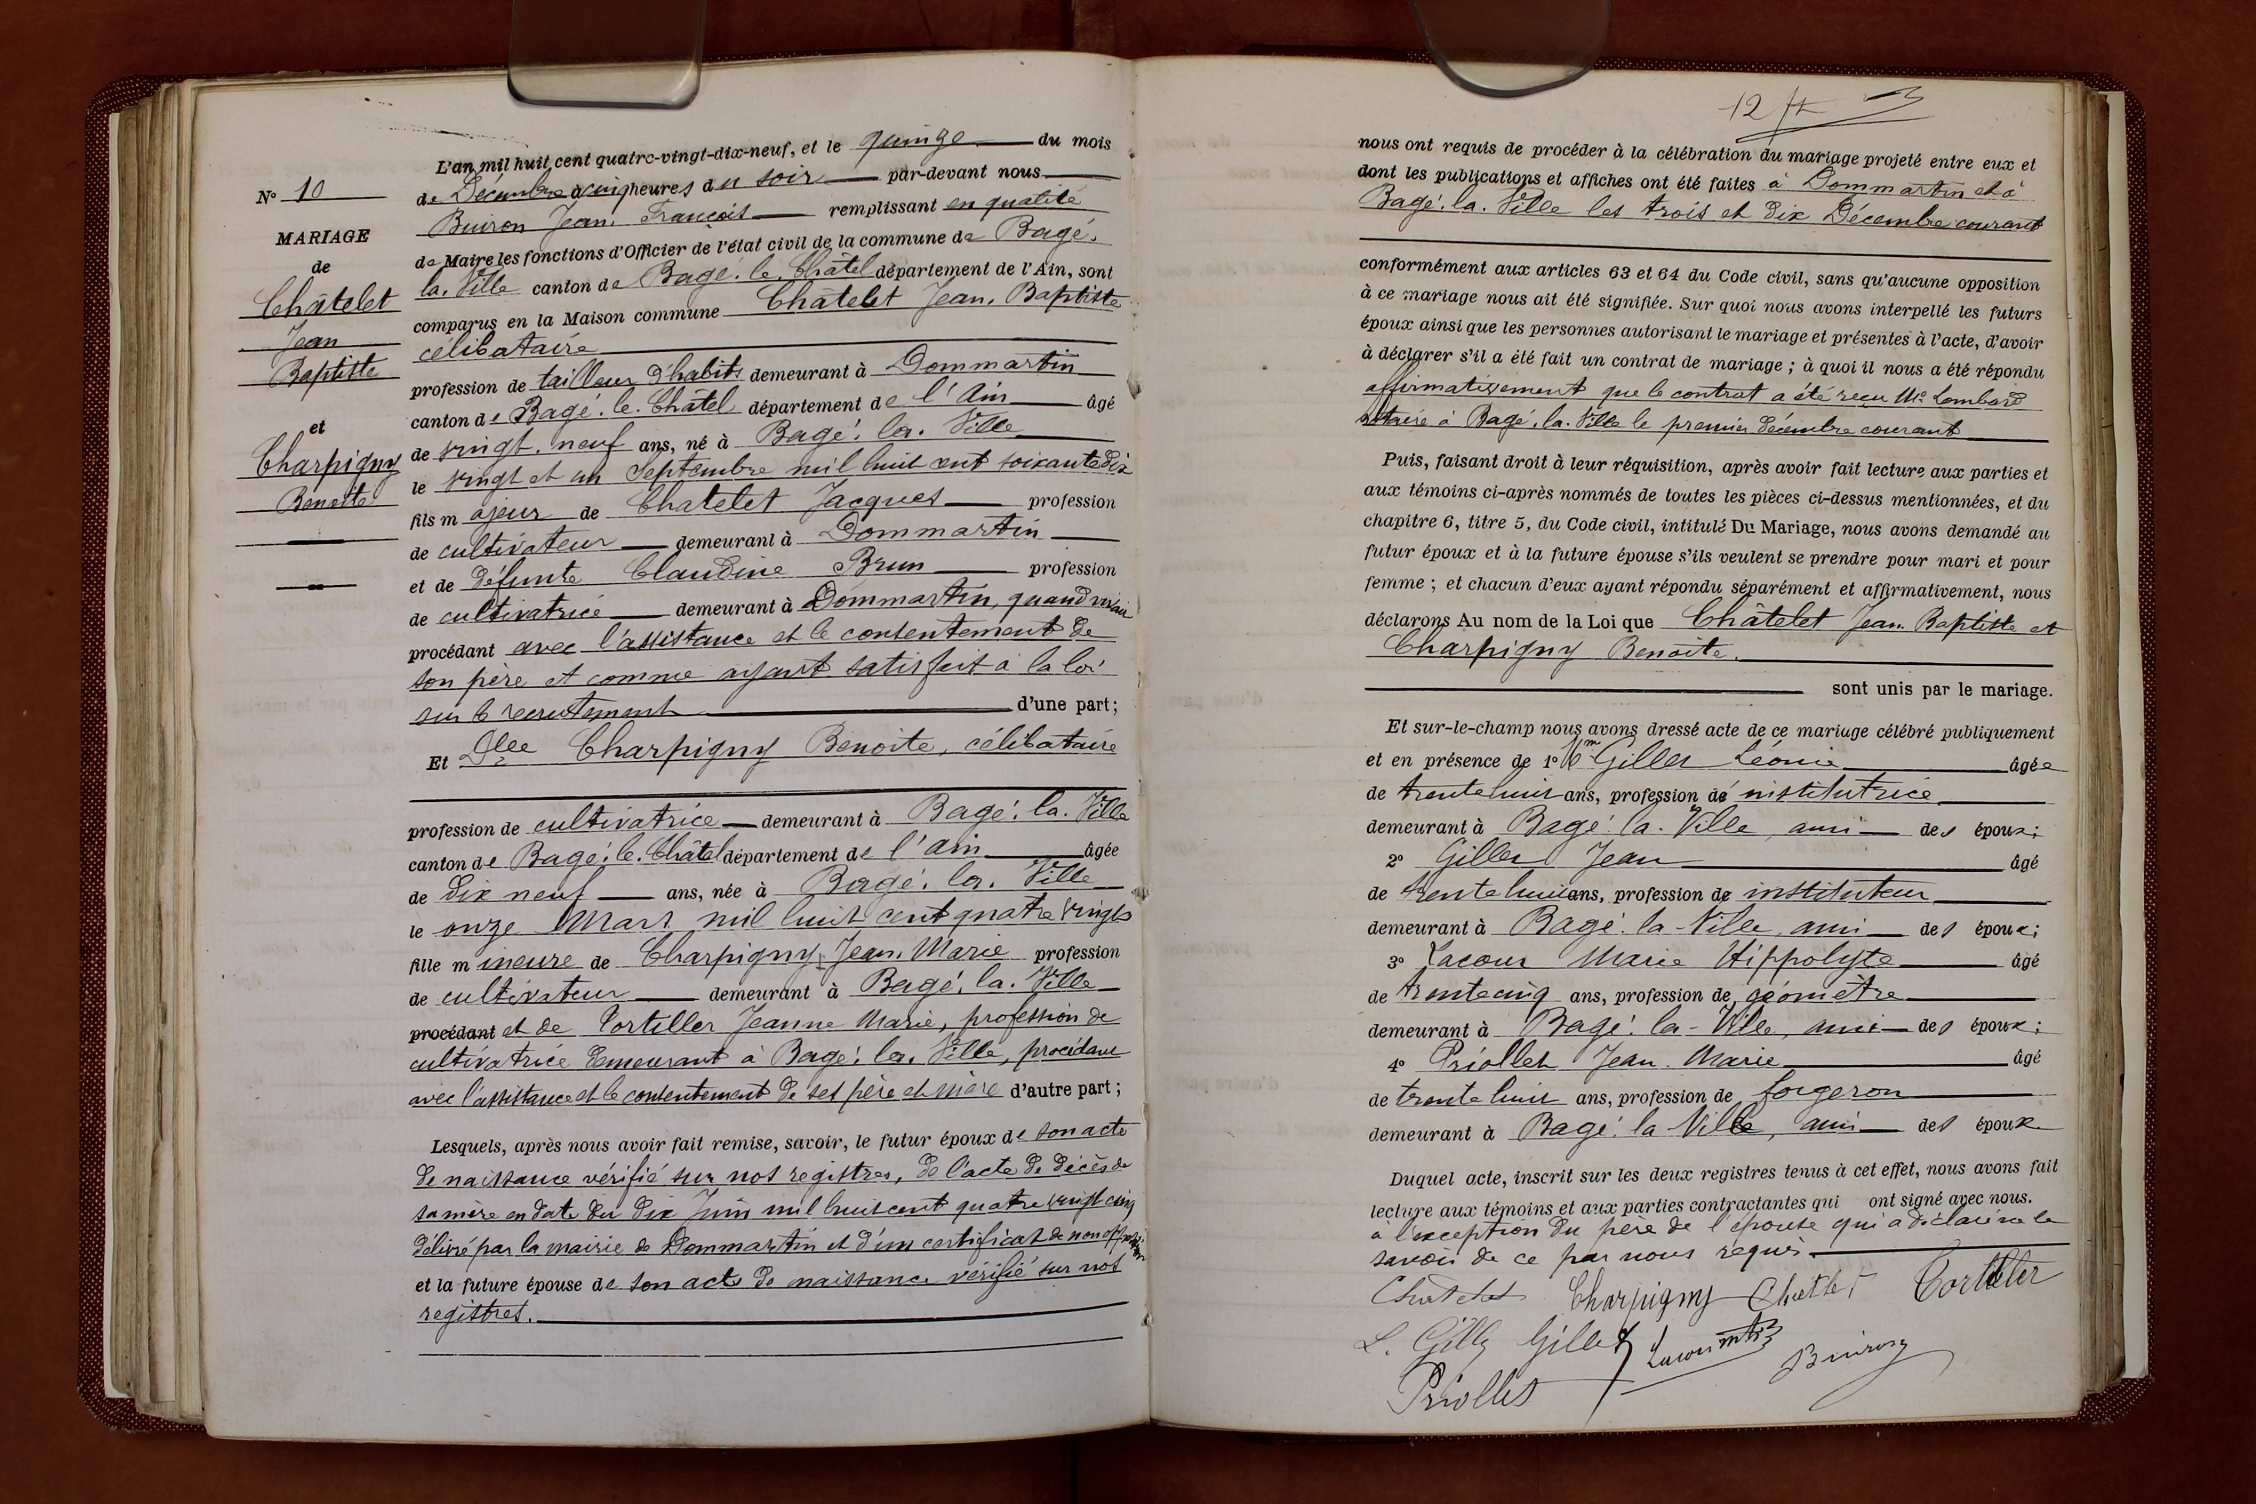 N° 10
MARIAGE
de
Châtelet
Jean
Baptiste
et
Charpigny
Benoite
L'an mil huit cent quatre-vingt-dix-neuf, et le quinze du mois
de Décembre à cinq heures du soir par-devant nous
Buiron Jean François remplissant en qualité
de Maire les fonctions d'Officier de l'état civil de la commune de Bagé-
la-Ville canton de Bagé-le-Châtel département de l'Ain, sont
comparus en la Maison commune Châtelet Jean-Baptiste
célibataire
profession de tailleur d'habits demeurant à Dommartin
canton de Bagé-le-Châtel département de l'Ain âgé
de vingt-neuf ans, né à Bagé-la-Ville
le vingt et un Septembre mil huit cent soixante dix
fils majeur de Chatelet Jacques profession
de cultivateur demeurant à Dommartin
et de défunte Claudine Brun profession
de cultivatrice demeurant à Dommartin, quand vivait
procédant avec l'assistance et le consentement de
son père et comme ayant satisfait à la loi
sur le recrutement d'une part;
Et Dlle Charpigny Benoite, célibataire
profession de cultivatrice demeurant à Bagé-la-Ville
canton de Bagé-le-Châtel département de l'Ain âgée
de dix neuf ans, née à Bagé-la-Ville
le onze Mars mil huit cent quatre vingts
fille mineure de Charpigny Jean-Marie profession
de cultivateur demeurant à Bagé-la-Ville
procédant et de Tortiller Jeanne Marie, profession de
cultivatrice demeurant à Bagé-la-Ville, procédant
avec l'assistance et le consentement de ses père et mère d'autre part;
Lesquels, après nous avoir fait remise, savoir, le futur époux de son acte
de naissance vérifié sur nos registres, de l'acte de décès de
sa mère en date du dix Juin mil huit cent quatre vingt cinq
délivré par la mairie de Dommartin et d'un certificat de non opposition
et la future épouse de son acte de naissance vérifié sur nos
registres.
12
nous ont requis de procéder à la célébration du mariage projeté entre eux et
dont les publications et affiches ont été faites à Dommartin et à
Bagé-la-Ville les trois et dix Décembre courant
conformément aux articles 63 et 64 du Code civil, sans qu'aucune opposition
à ce mariage nous ait été signifiée. Sur quoi nous avons interpellé les futurs
époux ainsi que les personnes autorisant le mariage et présentes à l'acte, d'avoir
à déclarer s'il a été fait un contrat de mariage; à quoi il nous a été répondu
affirmativement que le contrat a été reçu Me Lombard
notaire à Bagé-la-Ville le premier décembre courant
Puis, faisant droit à leur réquisition, après avoir fait lecture aux parties et
aux témoins ci-après nommés de toutes les pièces ci-dessus mentionnées, et du
chapitre 6, titre 5, du Code civil, intitulé Du Mariage, nous avons demandé au
futur époux et à la future épouse s'ils veulent se prendre pour mari et pour
femme; et chacun d'eux ayant répondu séparément et affirmativement, nous
déclarons Au nom de la Loi que Châtelet Jean-Baptiste et
Charpigny Benoite.
sont unis par le mariage.
Et sur-le-champ nous avons dressé acte de ce mariage célébré publiquement
et en présence de 1° Gilles Léonie âgée
de trente huit ans, profession de institutrice
demeurant à Bagé-la-Ville, ami des époux;
2° Gilles Jean âgé
de trente huit ans, profession de instituteur
demeurant à Bagé-la-Ville, ami des époux;
3° Lacour Marie Hippolyte âgé
de trente cinq ans, profession de géomètre
demeurant à Bagé-la-Ville, ami des époux;
4° Priollet Jean-Marie âgé
de trente huit ans, profession de forgeron
demeurant à Bagé-la-Ville, ami des époux
Duquel acte, inscrit sur les deux registres tenus à cet effet, nous avons fait
lecture aux témoins et aux parties contractantes qui ont signé avec nous.
à l'exception du père de l'épouse qui a déclaré ne le
savoir de ce par nous requis.
Chatelet Charpigny Chatelet Tortiller
L. Gilles Gilles Lacour Buiron
Priollet